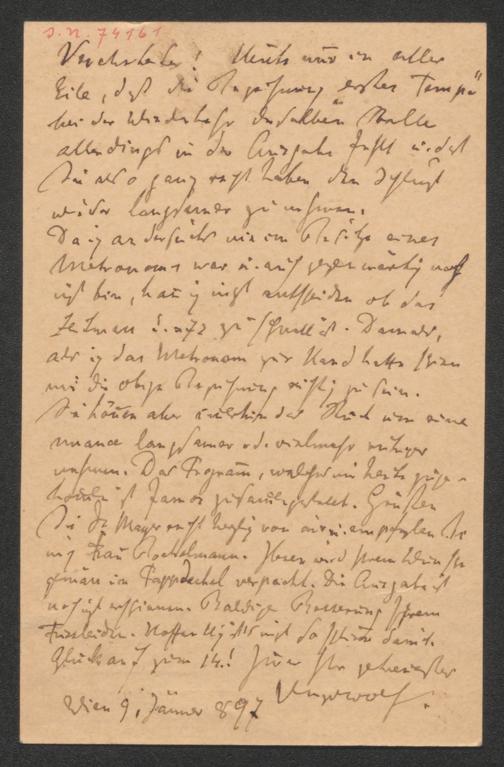 J.N. 74161
Verehrtester! Heute nur in aller
Eile, daß die Bezeichnung "erstes Tempo"
bei der Wiederkehr derselben Stelle
allerdings in der Ausgabe fehlt u. daß
Sie also ganz recht haben den Schluß
wieder langsamer zu nehmen.
Da ich andererseits nie im Besitze eines
Metronoms war u. auch gegenwärtig noch
nicht bin, kann ich nicht entscheiden ob das
Zeitmaß zu schnell ist. Damals,
als ich das Metronom zur Hand hatte schien
mir die obige Bezeichnung richtig zu sein.
Sie können aber immerhin das Stück um eine
nuance langsamer od. vielmehr ruhiger
nehmen. Das Programm, welches mir heute
ist famos zusammengestellt. Grüßen
Sie Dr Mayer recht herzlich von mir u. empfehlen Sie
mich Frau
verpackt. Die Ausgabe ist
noch nicht erschienen. Baldige Besserung Ihrem
Hoffentlich ist's nicht so schlimm damit.
Glück auf zum 14.! Ihr
Wien 9. Jänner 897 Hugo Wolf.